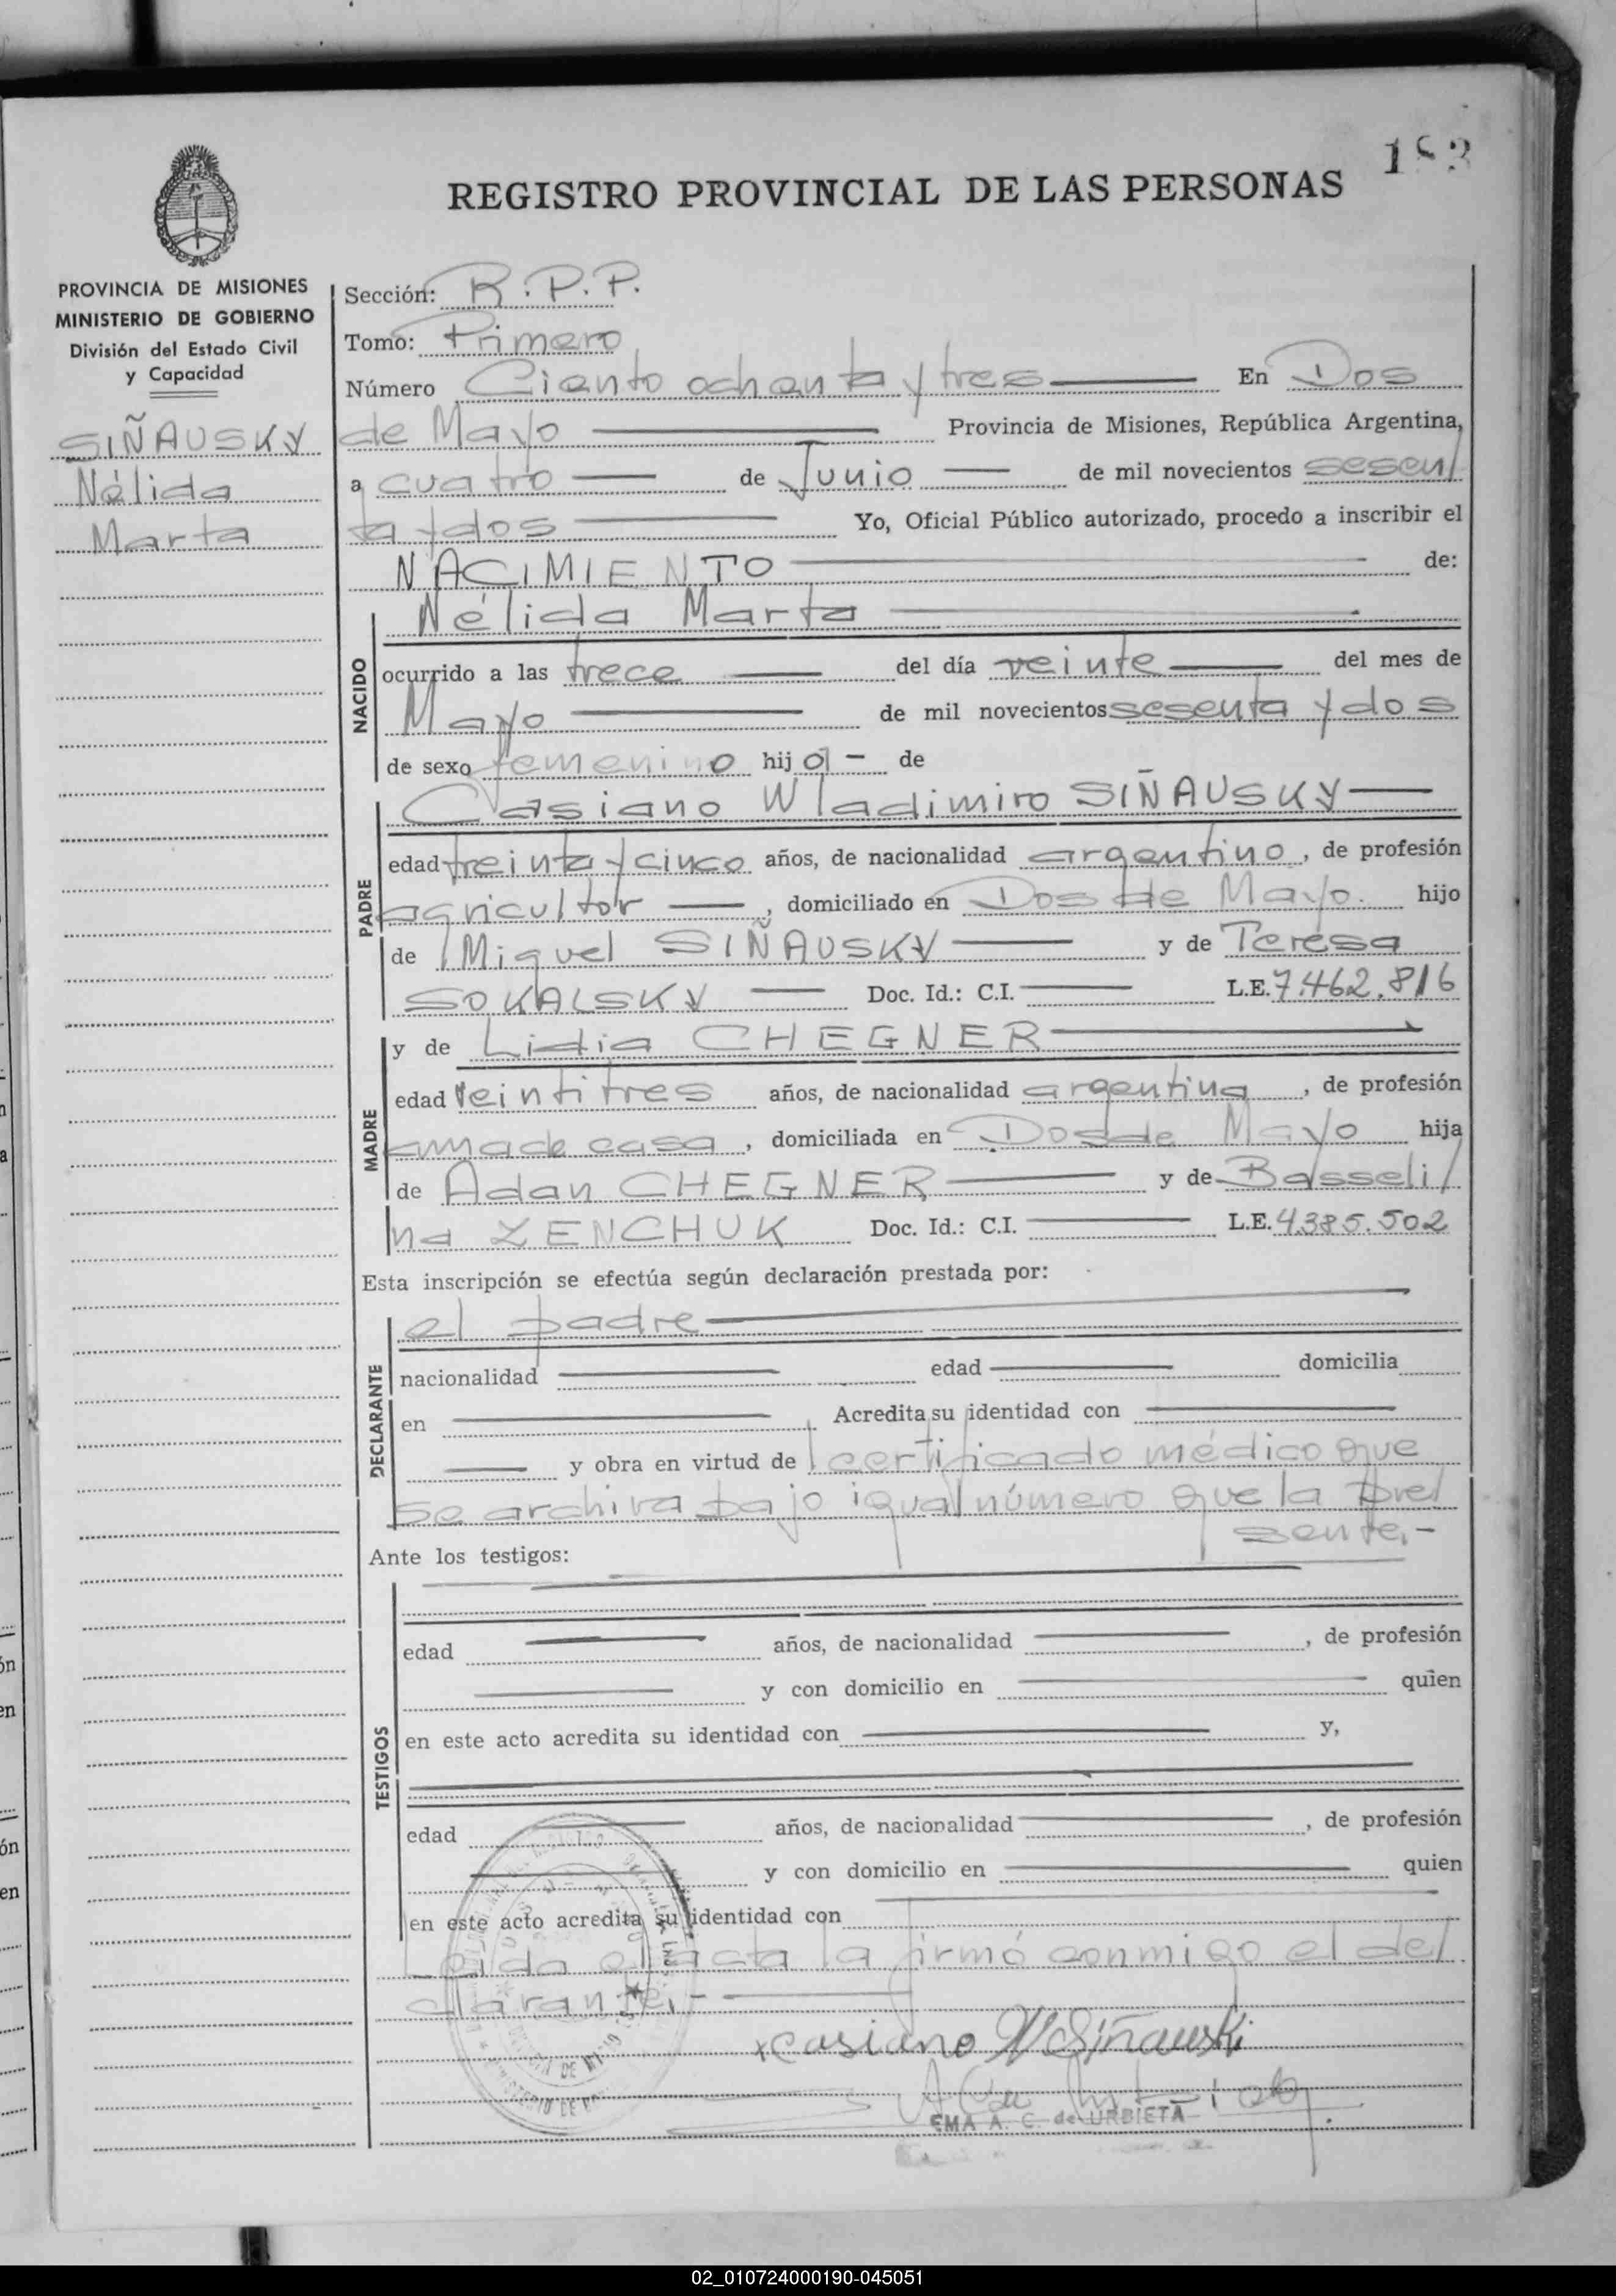 183
REGISTRO PROVINCIAL DE LAS PERSONAS
PROVINCIA DE MISIONES
MINISTERIO DE GOBIERNO
División del Estado Civil
y Capacidad
SIÑAUSKY
Nélida
Marta
Sección: R.P.P.
Tomo: Primero
Número Ciento ochenta y tres En Dos
de Mayo Provincia de Misiones, República Argentina,
a cuatro de Junio de mil novecientos sesen/
ta y dos Yo, Oficial Público autorizado, procedo a inscribir el
NACIMIENTO de:
NACIDO
Nélida Marta
ocurrido a las trece del día veinte del mes de
Mayo de mil novecientos sesenta y dos
de sexo femenino hija - de
PADRE
Casiano Wladimiro SIÑAUSKY
edad treinta y cinco años, de nacionalidad argentino, de profesión
agricultor, domiciliado en Dos de Mayo. hijo
de Miguel SIÑAUSKY y de Teresa
SOKALSKY Doc. Id.: C.I. L.E. 7.462.816
MADRE
y de Lidia CHEGNER
edad veintitres años, de nacionalidad argentina, de profesión
ama de casa, domiciliada en Dos de Mayo hija
de Adan CHEGNER y de Basseli/
na ZENCHUK Doc. Id.: C.I. L.E. 4.385.502
Esta inscripción se efectúa según declaración prestada por:
DECLARANTE
el padre
nacionalidad edad domicilia
en Acredita su identidad con
y obra en virtud de certificado médico que
se archiva bajo igual número que la pre/
sente.-
Ante los testigos:
TESTIGOS
edad años, de nacionalidad , de profesión
y con domicilio en quien
en este acto acredita su identidad con y,
edad años, de nacionalidad , de profesión
y con domicilio en quien
en este acto acredita su identidad con
Leida el acta la firmó conmigo el de/
clarante.-
x Casiano W Siñauski
EMA A. C. de URBIETA
02_010724000190-045051